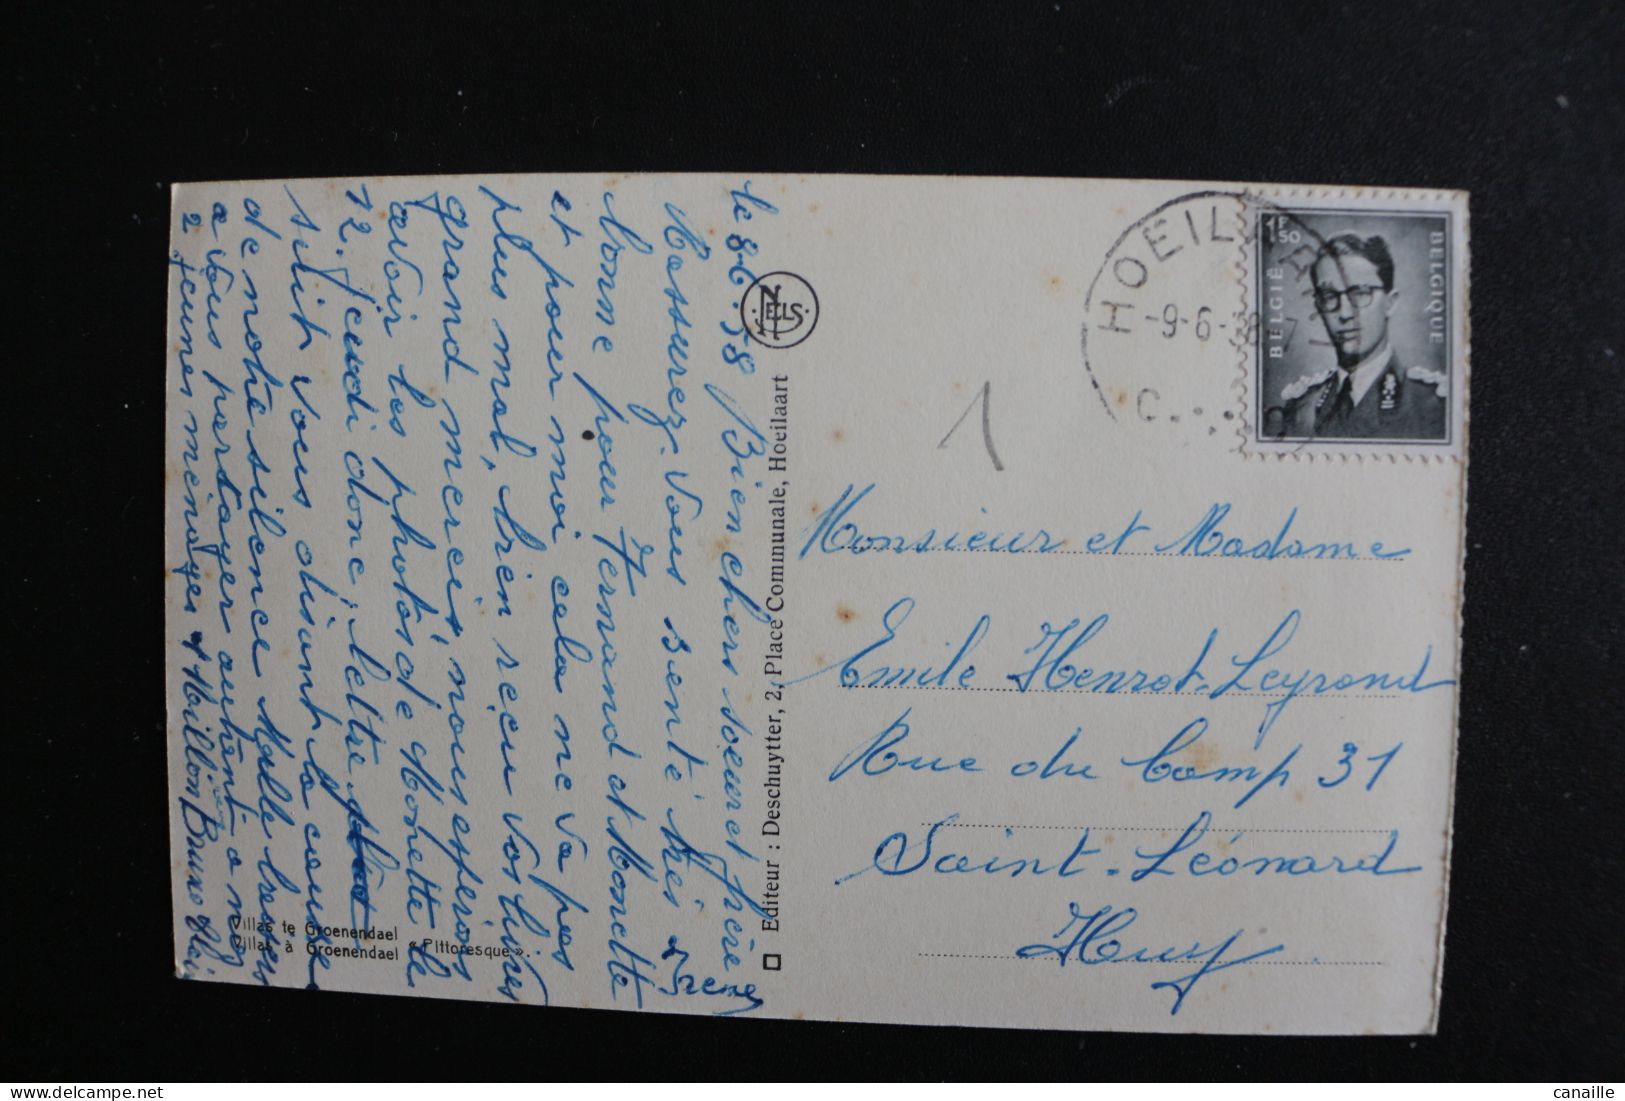 le 8-6-58 Bien chers soeur et frère
Rassurez-vous santé très
bonne pour Fernand et Monette
et pour moi cela ne va pas
plus mal, bien reçu vos lignes
grand merci, nous espérons
avoir les photos de Monette le
12. Jeudi donc, lettre
suit vous disant la cause
de notre silence Mille baisers
à vous partager autant à nos
2 jeunes ménages
Irène
Villas te Groenendael
Villas à Groenendael « Pittoresque ».
NELS
Editeur : Deschuytter, 2, Place Communale, Hoeilaart
HOEILAART
-9-6-58
BELGIË BELGIQUE
1F50
1
Monsieur et Madame
Emile Henrot-Leyrand
Rue du Camp 31
Saint-Léonard
Huy
canaille
delcampe.net